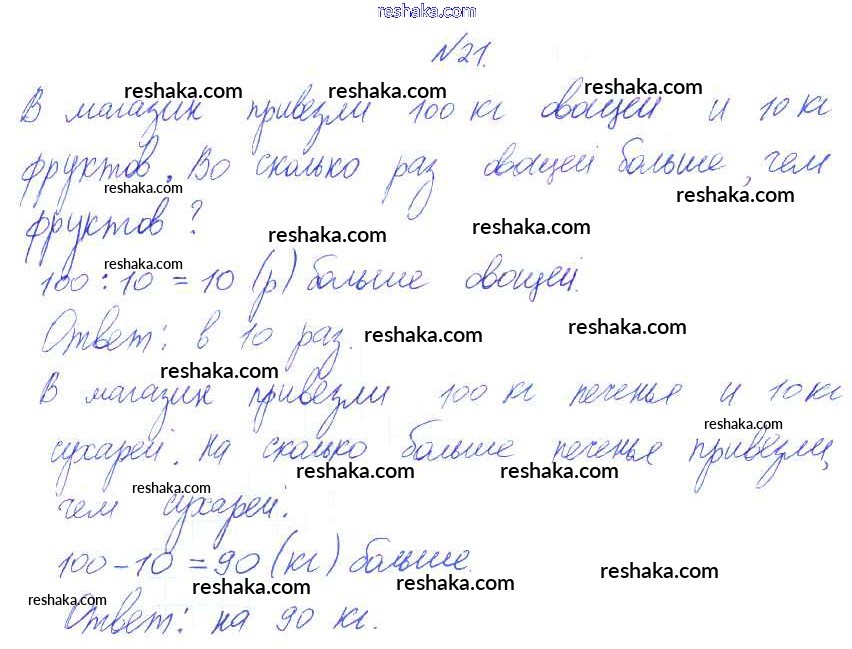 reshaka.com
№21.
reshaka.com reshaka.com reshaka.com
В магазин привезли 100 кг овощей и 10 кг
фруктов. Во сколько раз овощей больше, чем
reshaka.com reshaka.com
фруктов?
reshaka.com reshaka.com
reshaka.com
100 : 10 = 10 (р) больше овощей.
Ответ: в 10 раз.
reshaka.com reshaka.com
reshaka.com
В магазин привезли 100 кг печенья и 10 кг
reshaka.com
сухарей. На сколько больше печенья привезли,
reshaka.com reshaka.com
reshaka.com
чем сухарей.
100 - 10 = 90 (кг) больше.
reshaka.com reshaka.com reshaka.com
reshaka.com
Ответ: на 90 кг.